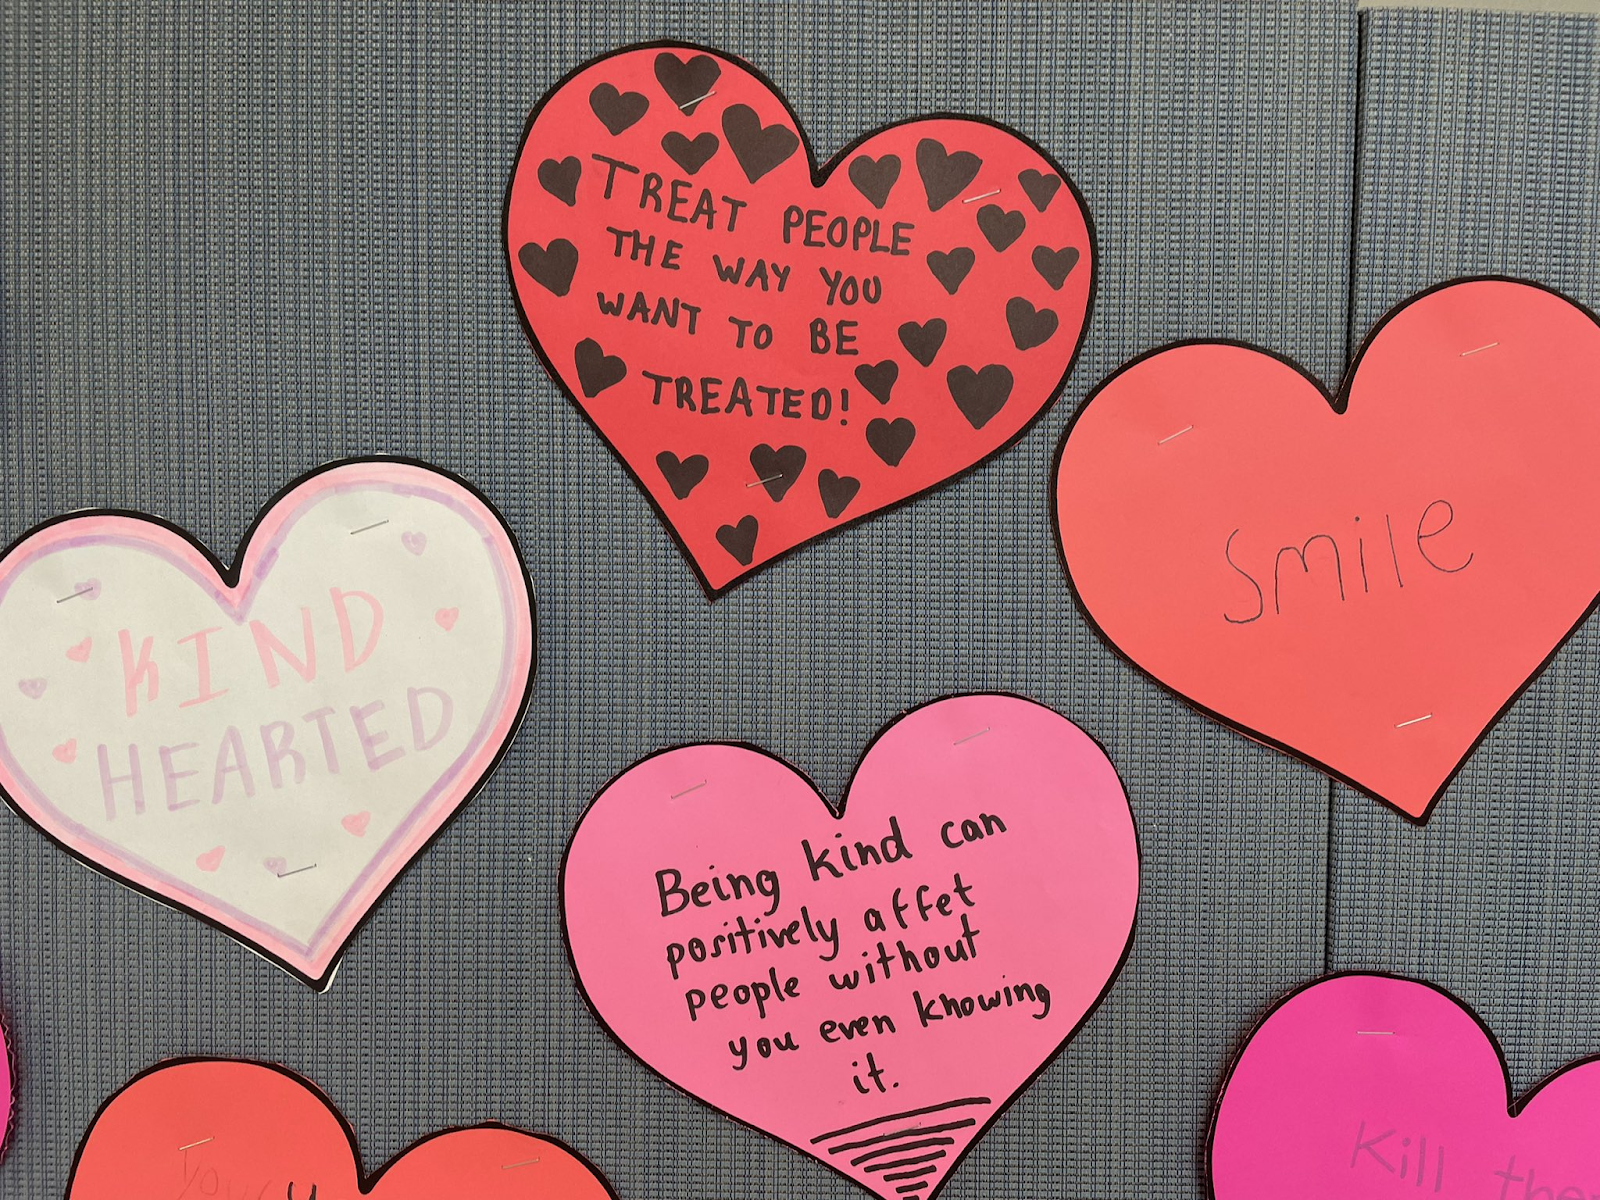 TREAT PEOPLE
THE WAY YOU
WANT TO BE
TREATED!
Smile
KIND
HEARTED
Being kind can
positively affet
people without
you even knowing
it.
Kill